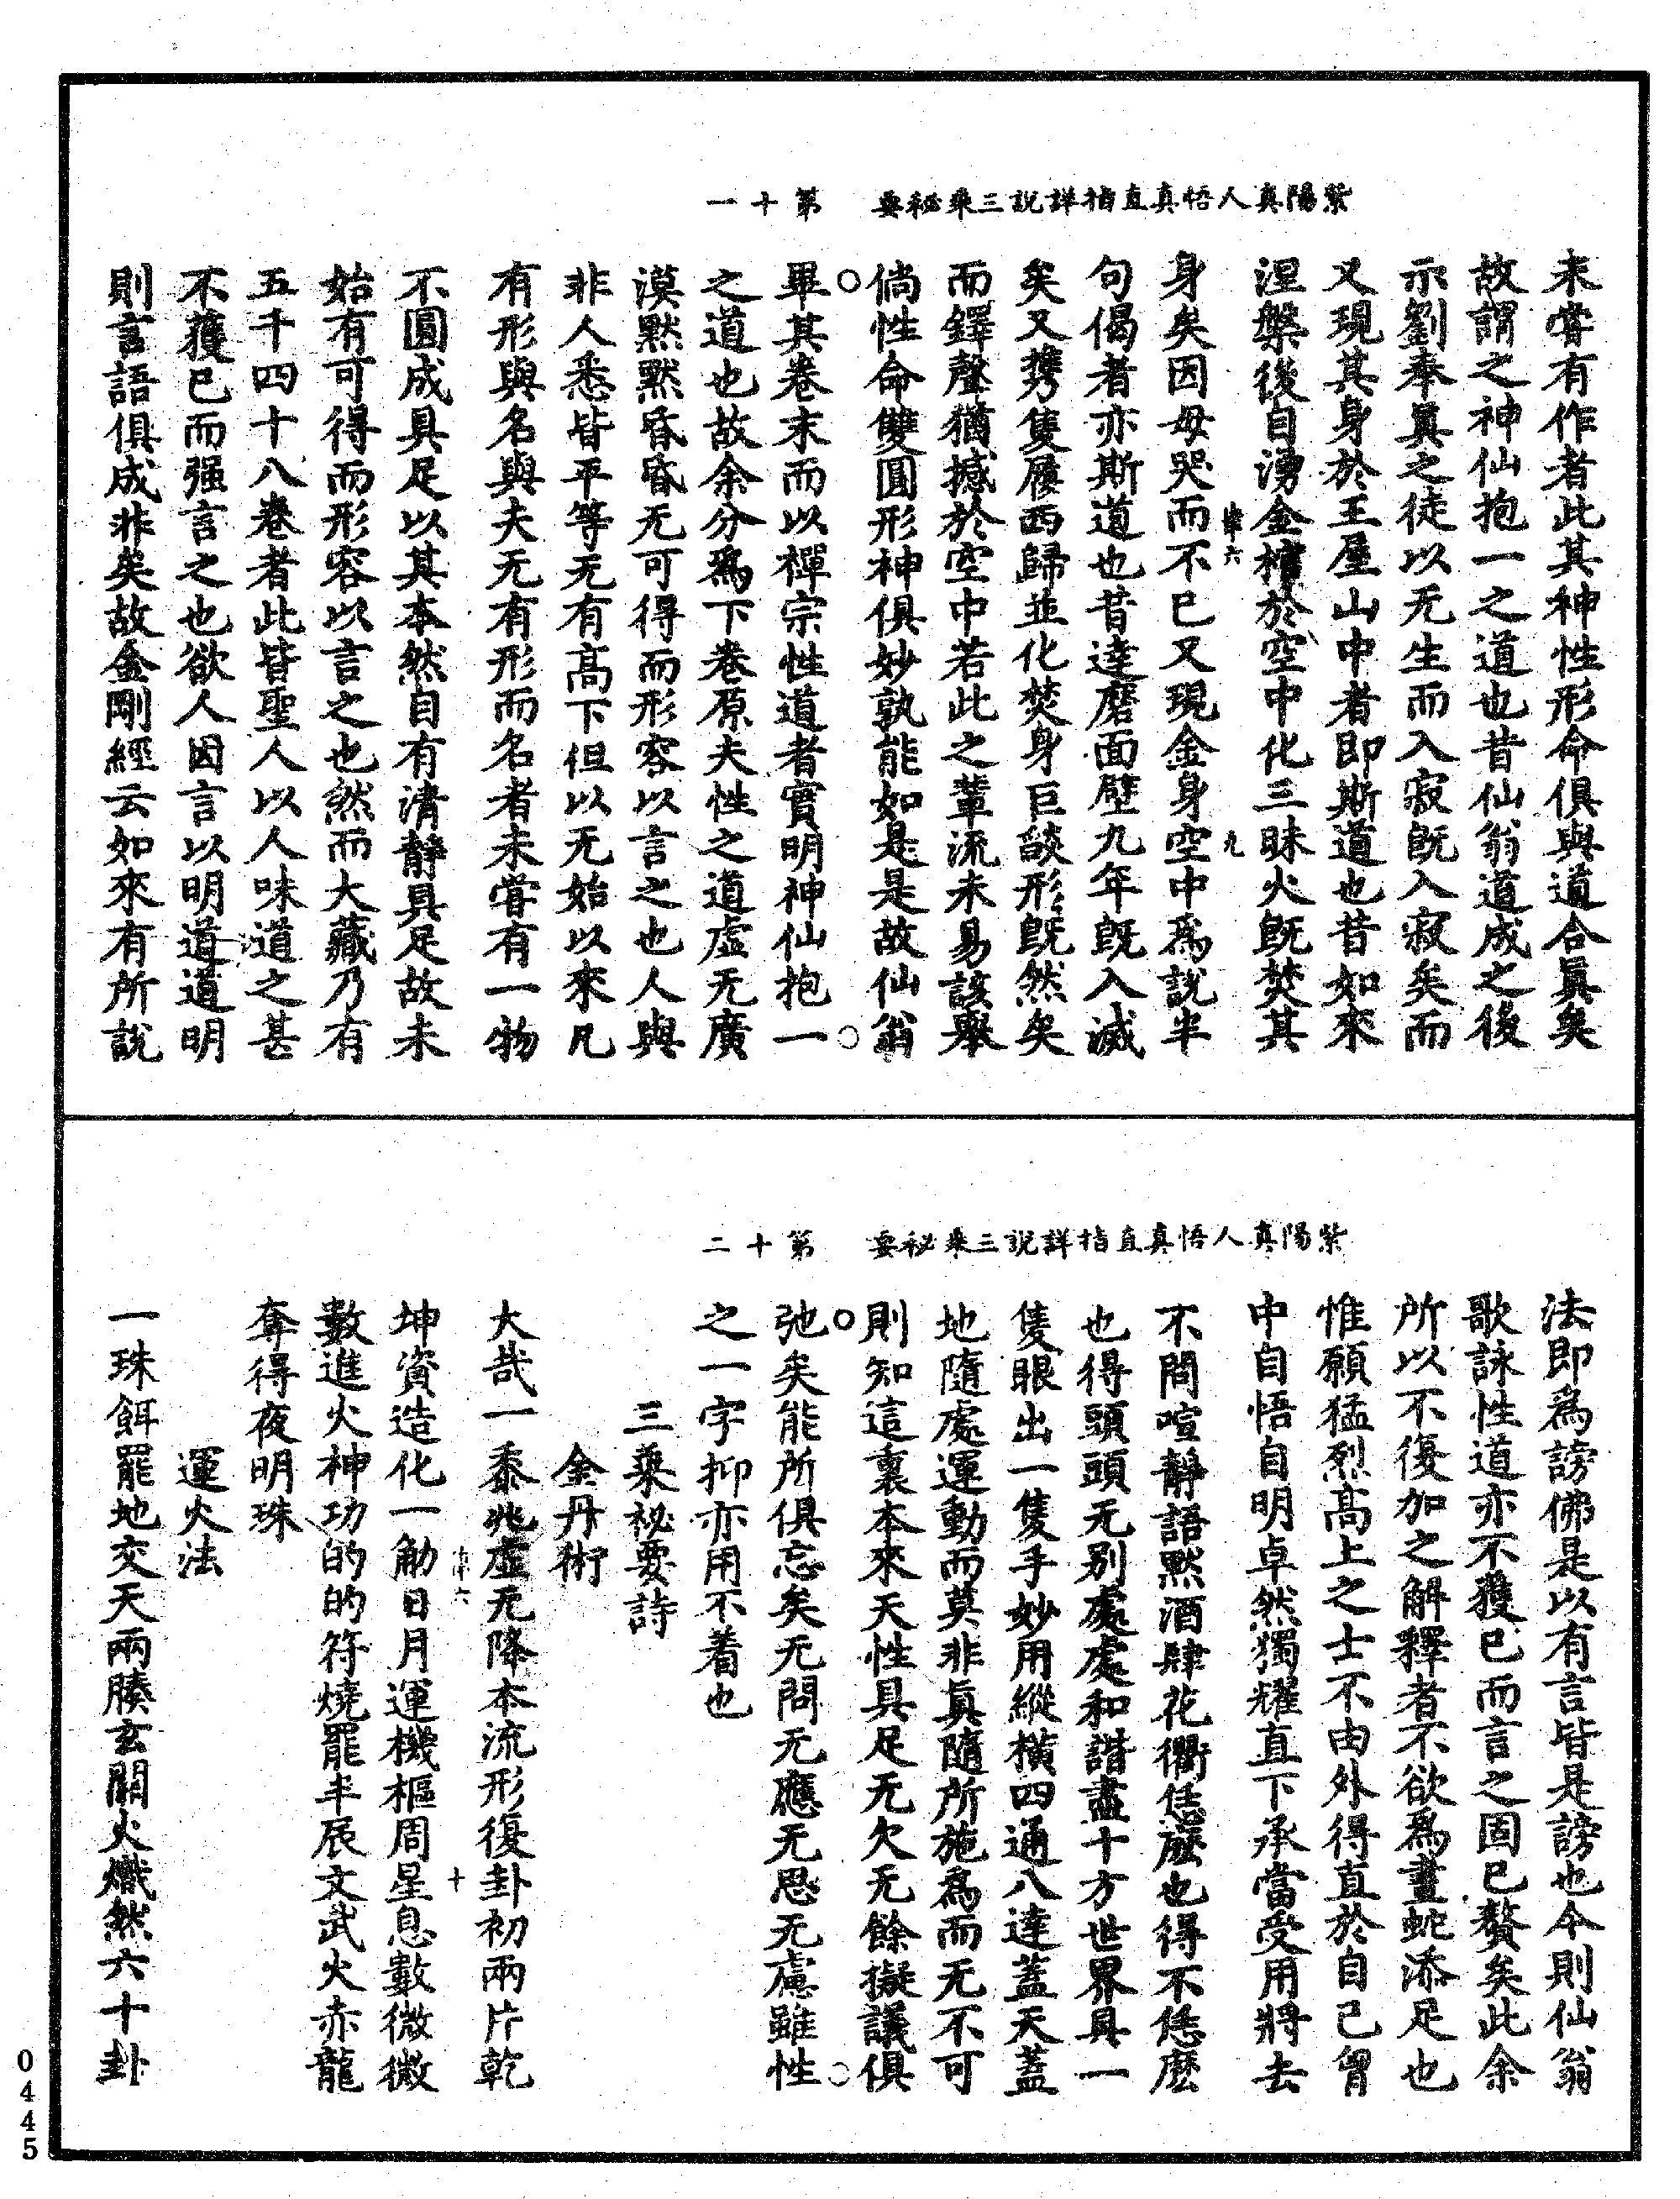 紫陽真人悟真直指詳說三乘秘要　第十一
未嘗有作者此其神性形命俱與道合眞矣
故謂之神仙抱一之道也昔仙翁道成之後
示劉奉眞之徒以无生而入寂旣入寂矣而
又現其身於王屋山中者即斯道也昔如來
涅槃後自湧金棺於空中化三昧火旣焚其
身矣因母哭而不已又現金身空中爲說半
句偈者亦斯道也昔達磨面壁九年旣入滅
矣又携隻履西歸並化焚身巨燄形旣然矣
而鐸聲猶撼於空中若此之輩流未易該舉
倘性命雙圓形神俱妙孰能如是是故仙翁
畢其卷末而以禪宗性道者實明神仙抱一
之道也故余分爲下卷原夫性之道虛无廣
漠默默昏昏无可得而形容以言之也人與
非人悉皆平等无有高下但以无始以來凡
有形與名與夫无有形而名者未嘗有一物
不圓成具足以其本然自有清靜具足故未
始有可得而形容以言之也然而大藏乃有
五千四十八卷者此皆聖人以人味道之甚
不獲已而强言之也欲人因言以明道道明
則言語俱成非矣故金剛經云如來有所說
紫陽真人悟真直指詳說三乘秘要　第十二
法即爲謗佛是以有言皆是謗也今則仙翁
歌詠性道亦不獲已而言之固已贅矣此余
所以不復加之解釋者不欲爲畫蛇添足也
惟願猛烈高上之士不由外得直於自己胷
中自悟自明卓然獨耀直下承當受用將去
不問喧靜語默酒肆花衢恁麽也得不恁麽
也得頭頭无别處處和諧盡十方世界具一
隻眼出一隻手妙用縱橫四通八達蓋天蓋
地隨處運動而莫非眞隨所施爲而无不可
則知這裏本來天性具足无欠无餘擬議俱
弛矣能所俱忘矣无問无應无思无慮雖性
之一字抑亦用不着也
三乘祕要詩
金丹術
大哉一黍兆虛无降本流形復卦初兩片乾
坤資造化一觔日月運機樞周星息數微微
數進火神功的的符燒罷半辰文武火赤龍
奪得夜明珠
運火法
一珠餌罷地交天兩腠玄關火熾然六十卦
九
十
0445